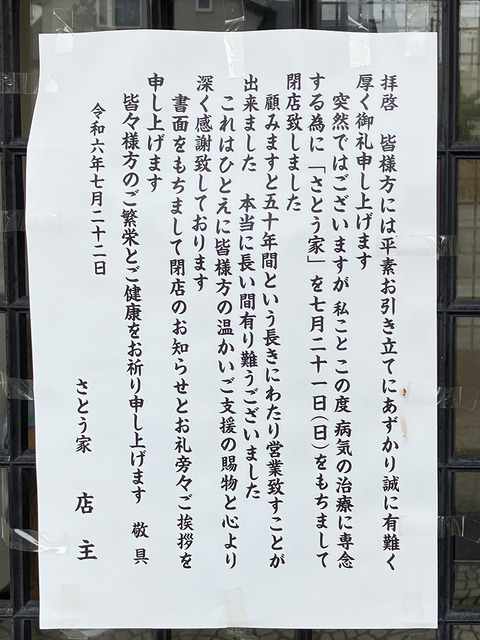 拝啓　皆様方には平素お引き立てにあずかり誠に有難く
厚く御礼申し上げます
突然ではございますが 私こと この度 病気の治療に専念
する為に「さとう家」を七月二十一日(日)をもちまして
閉店致しました
顧みますと五十年間という長きにわたり営業致すことが
出来ました　本当に長い間有り難うございました
これはひとえに皆様方の温かいご支援の賜物と心より
深く感謝致しております
書面をもちまして閉店のお知らせとお礼旁々ご挨拶を
申し上げます
皆々様方のご繁栄とご健康をお祈り申し上げます　敬具
令和六年七月二十二日
さとう家　店主